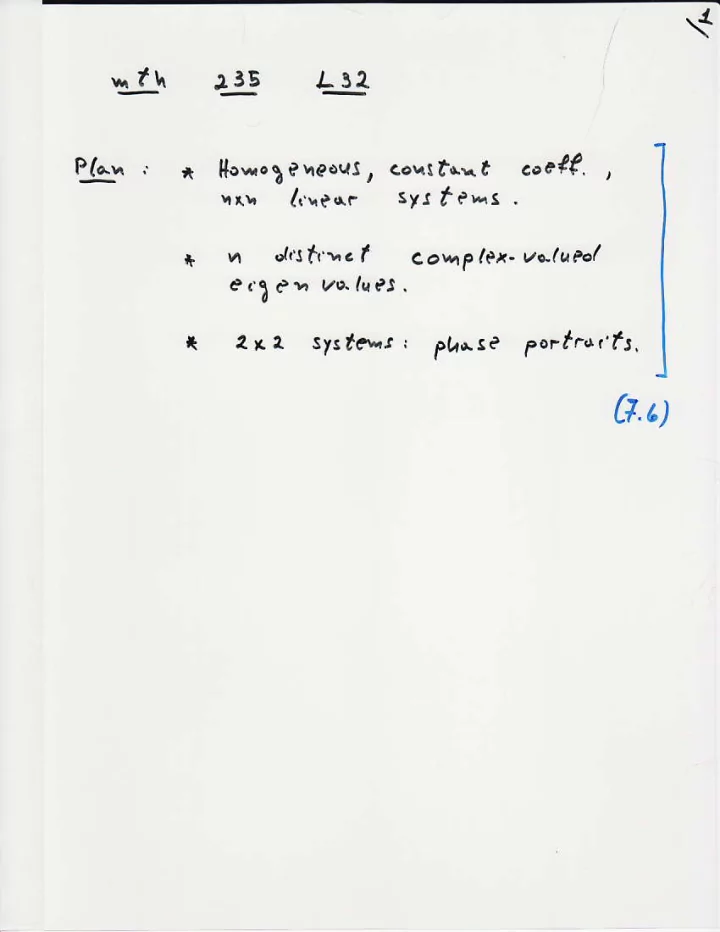 1
mth 235 L32
Plan : * Homogeneous, constant coeff. ,
nxn linear systems.
* n distinct complex-valued
eigen values.
* 2x2 systems: phase portraits.
(7.6)